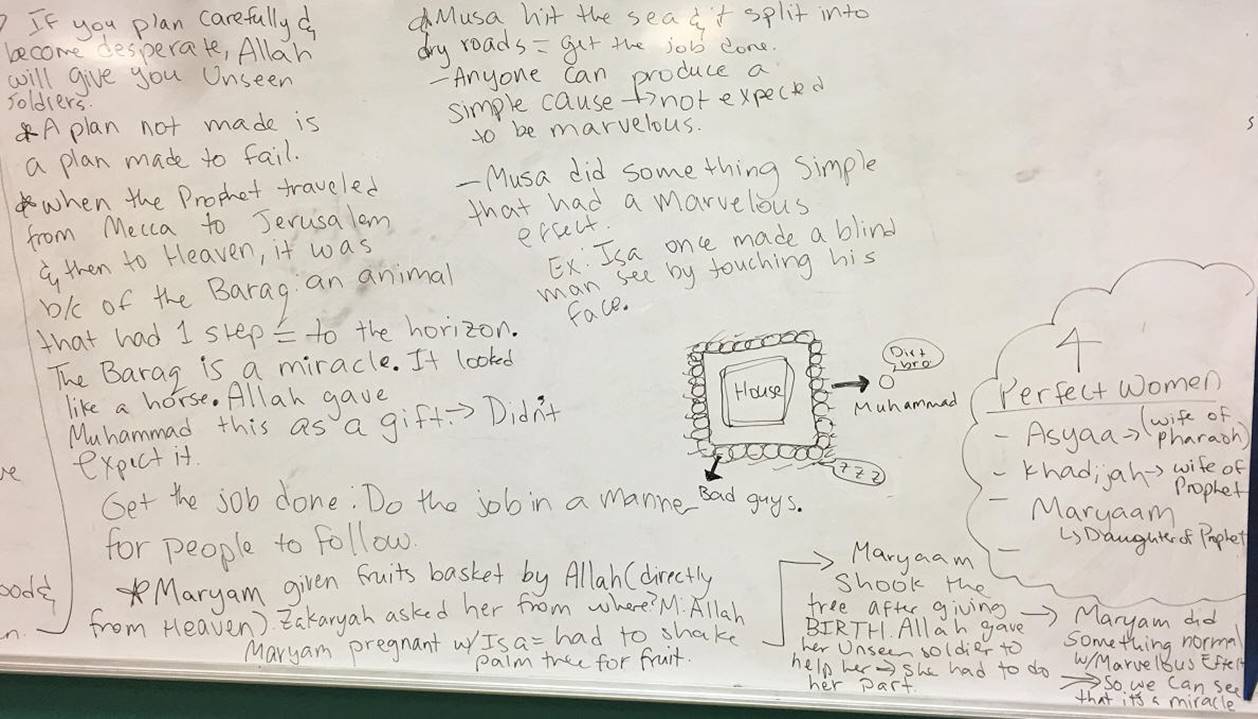 If you plan carefully &
become desperate, Allah
will give you Unseen
soldiers.
*A plan not made is
a plan made to fail.
*when the Prophet traveled
from Mecca to Jerusalem
& then to Heaven, it was
b/c of the Baraq: an animal
that had 1 step = to the horizon.
The Baraq is a miracle. It looked
like a horse. Allah gave
Muhammad this as a gift. → Didn't
expect it.
Get the job done: Do the job in a manne
for people to follow.
*Maryam given fruits basket by Allah (directly
from Heaven). Zakaryah asked her from where? M: Allah
Maryam pregnant w/ Isa = had to shake
palm tree for fruit.
Musa hit the sea & it split into
dry roads = get the job done.
- Anyone can produce a
simple cause → not expected
to be marvelous.
- Musa did something simple
that had a marvelous
effect.
Ex: Isa once made a blind
man see by touching his
face.
House
Dirt
bro
Muhammad
zzz
Bad guys.
4
Perfect Women
- Asyaa → (wife of
pharaoh)
- Khadijah → wife of
Prophet
- Maryaam
↳ Daughter of Prophet
-
→ Maryaam
Shook the
tree after giving
BIRTH. Allah gave
her Unseen soldier to
help her → She had to do
her part.
→ Maryam did
Something normal
w/ Marvelous Effect
⇒ So we can see
that it's a miracle
ve
ood &
n.
s